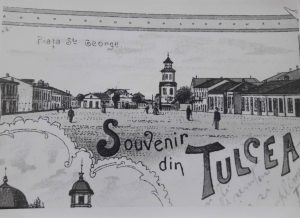 Piața St George
Souvenir
din
TULCEA